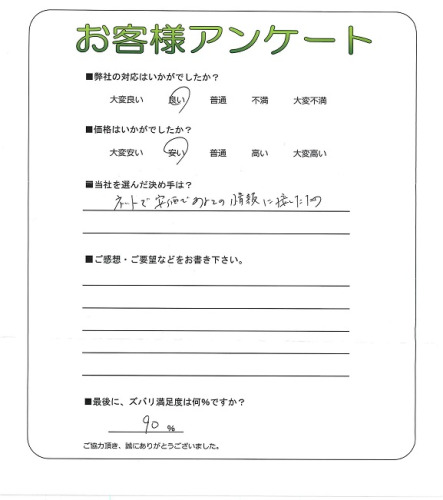 お客様アンケート
■弊社の対応はいかがでしたか？
大変良い 良い 普通 不満 大変不満
■価格はいかがでしたか？
大変安い 安い 普通 高い 大変高い
■当社を選んだ決め手は？
ネットで安価で の情報に接したため
■ご感想・ご要望などをお書き下さい。
■最後に、ズバリ満足度は何%ですか？
90 %
ご協力頂き、誠にありがとうございました。